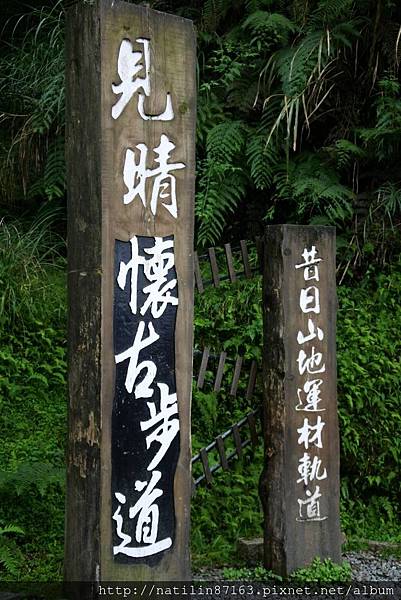 見晴懷古步道
昔日山地運材軌道
http://natilin87163.pixnet.net/album